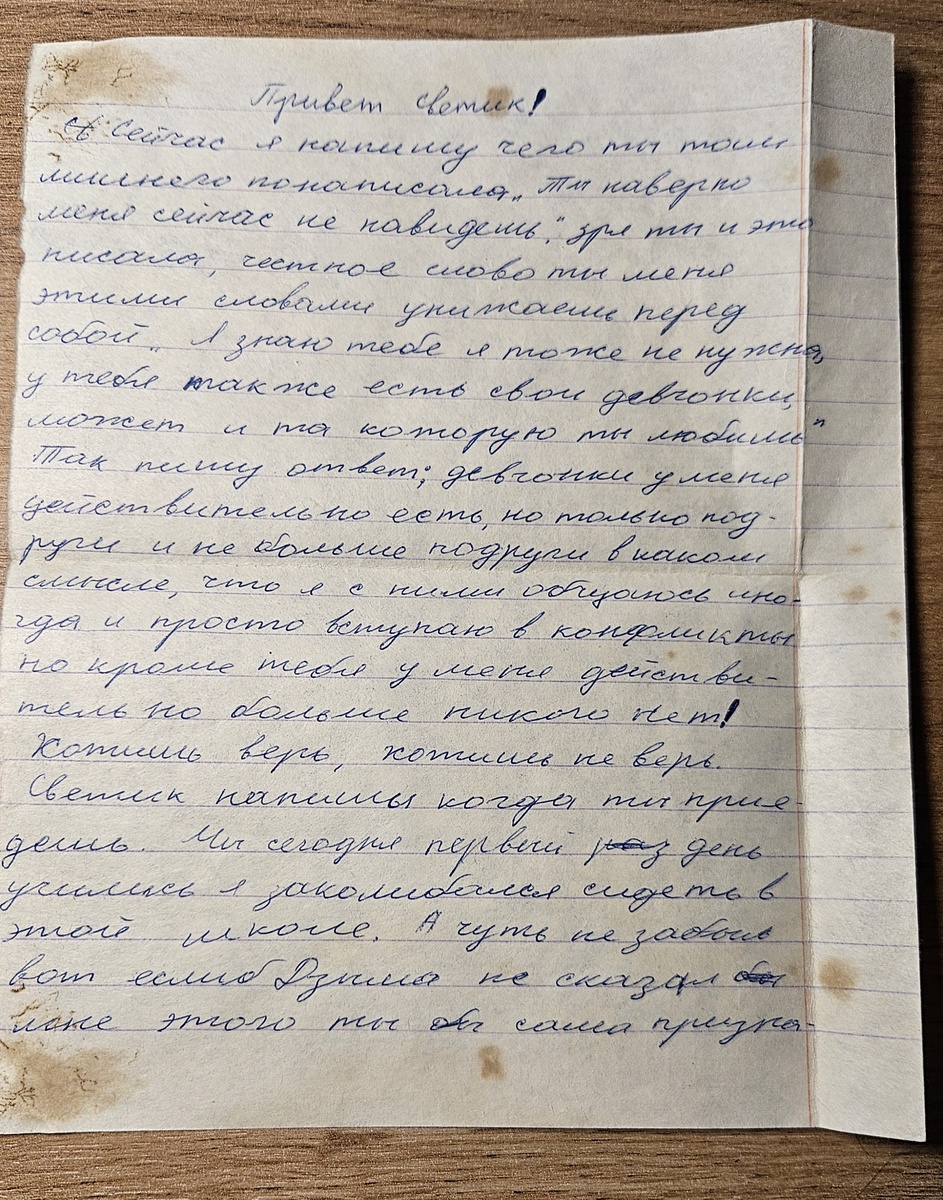 Привет Светик!
Сейчас я напишу чего ты там
лишнего понаписала „Ты наверно
меня сейчас не навидешь", зря ты и это
писала, честное слово ты меня
этими словами унижаешь перед
собой „Я знаю тебе я тоже не нужна,
у тебя также есть свои девчонки,
может и та которую ты любишь"
Так пишу ответ; девчонки у меня
действительно есть, но только под-
руги и не больше подруги в каком
смысле, что я с ними общаюсь ино-
гда и просто вступаю в конфликты
но кроме тебя у меня действи-
тельно больше никого нет!
Хотишь верь, хотишь не верь.
Светик напишы когда ты прие-
дешь. Мы сегодня первый раз день
учились я заколибался сидеть в
этой школе. А чуть не забыл
вот еслиб Дзыма не сказал бы
мне этого ты бы сама призна-